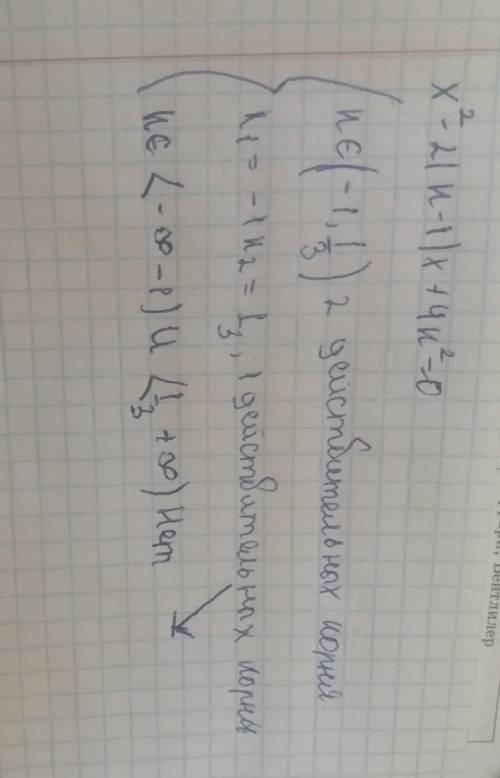 x² - 2(к-1)x + 4к² = 0
кϵ(-1, 1/3) 2 действительных корня
к1 = -1 к2 = 1/3, 1 действительных корня
кϵ (-∞ -1) U (1/3 +∞) Нет